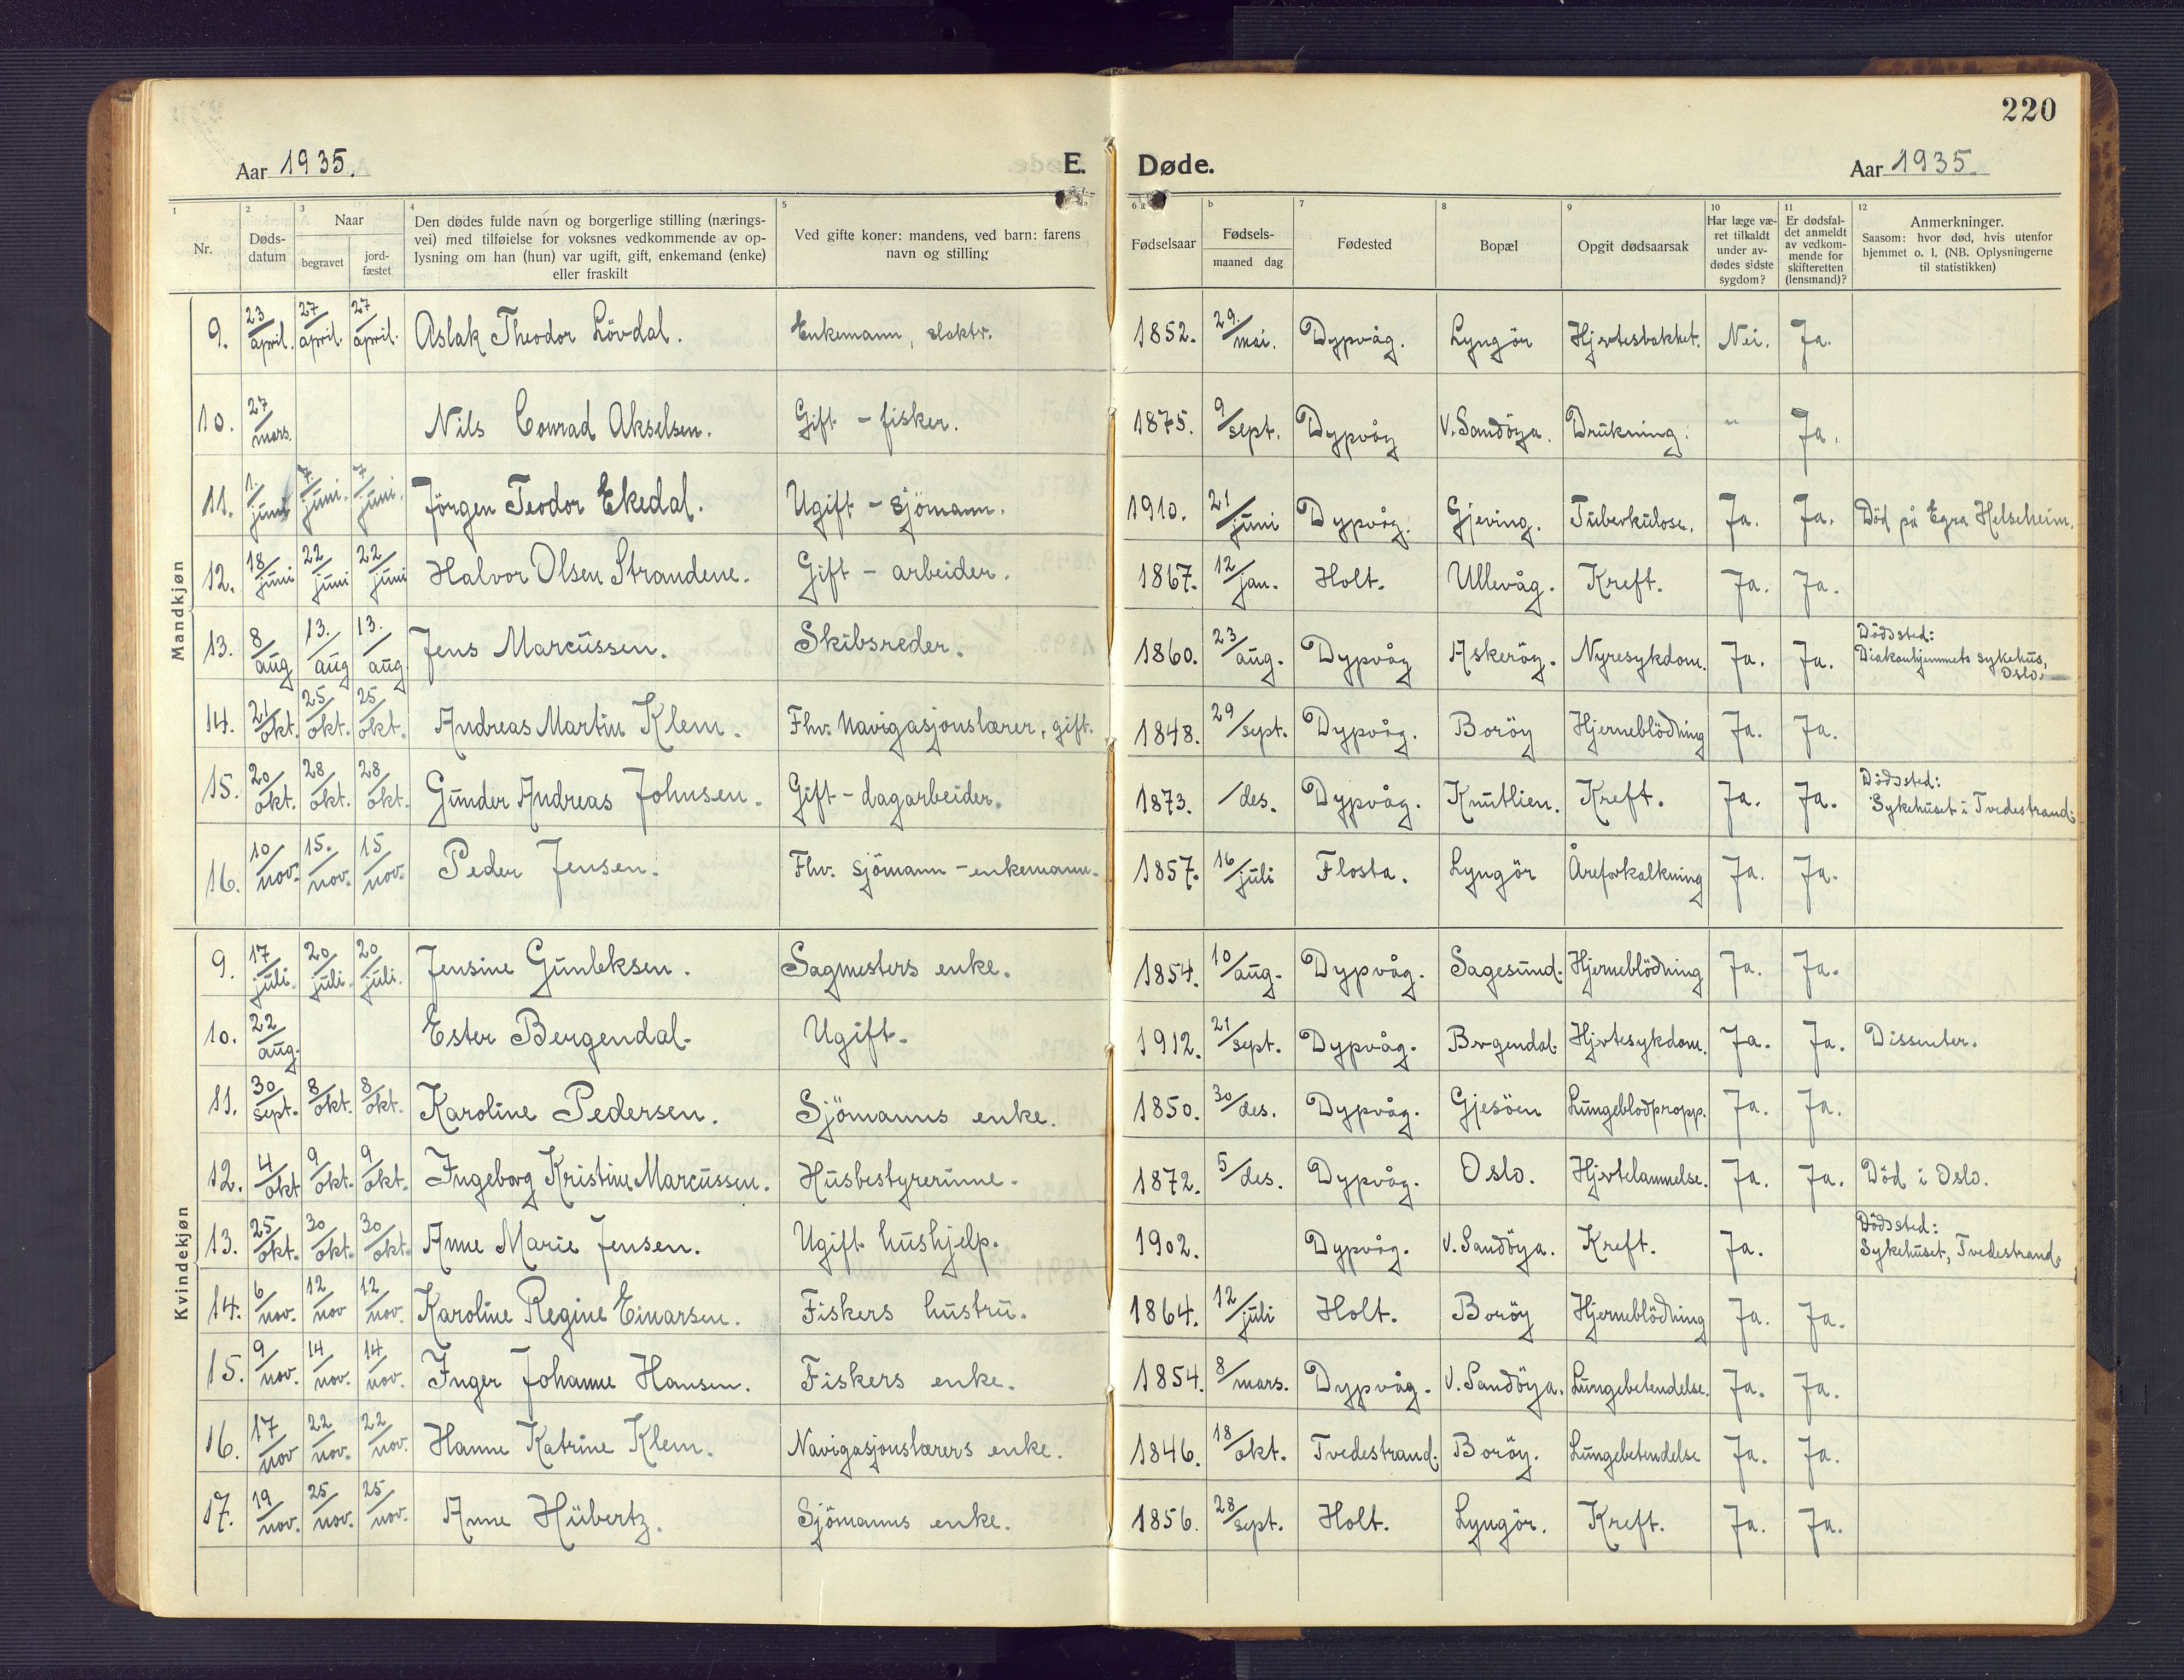 220
Aar 1935. E. Døde. Aar 1935.
1 2 3 4 5 6 a b 7 8 9 10 11 12
Nr. | Døds-datum | Naar begravet | jord-fæstet | Den dødes fulde navn og borgerlige stilling (nærings-vei) med tilføielse for voksnes vedkommende av op-lysning om han (hun) var ugift, gift, enkemand (enke) eller fraskilt | Ved gifte koner: mandens, ved barn: farens navn og stilling | Fødselsaar | Fødsels-maaned dag | Fødested | Bopæl | Opgit dødsaarsak | Har læge væ-ret tilkaldt under av-dødes sidste sygdom? | Er dødsfal-det anmeldt av vedkom-mende for skifteretten (lensmand)? | Anmerkninger. Saasom: hvor død, hvis utenfor hjemmet o. l. (NB. Oplysningerne til statistikken)
Mandkjøn
9. 23/april. 27/april. 27/april. Aslak Theodor Lövdal. Enkemann, slakter. 1852. 29./mai. Dypvåg. Lyngör Hjertesvakhet. Nei. Ja.
10. 27/mars. Nils Conrad Akselsen. Gift - fisker. 1875. 9/sept. Dypvåg V. Sandöya. Drukning. " Ja.
11. 1./juni 7./juni. 7/juni. Jörgen Teodor Ekedal. Ugift - sjömann. 1910. 21/juni Dypvåg. Gjeving. Tuberkulose. Ja. Ja. Död på Egra Helseheim.
12. 18/juni 22/juni 22/juni Halvor Olsen Strandene. Gift - arbeider. 1867. 12/jan. Holt. Ullevåg. Kreft. Ja. Ja.
13. 8/aug 13./aug 13./aug. Jens Marcussen. Skibsreder. 1860. 23/aug. Dypvåg Askeröy. Nyresykdom. Ja. Ja. Dödssted: Diakonhjemmets sykehus, Oslo.
14. 21/okt. 25/okt. 25/okt. Andreas Martin Klem. Fhv. Navigasjonslærer, gift. 1848. 29/sept. Dypvåg. Boröy Hjerneblödning Ja. Ja.
15. 20/okt. 28/okt. 28/okt. Gunder Andreas Johnsen. Gift - dagarbeider. 1873. /des. Dypvåg. Knutlien. Kreft. Ja. Ja. Dödssted: Sykehuset i Tvedestrand.
16. 10/nov. 15./nov. 15/nov. Peder Jensen. Fhv. sjömann - enkemann. 1857. 16/juli Flosta. Lyngör Åreforkalkning Ja. Ja.
Kvindekjøn
9. 17/juli. 20/juli. 20/juli. Jensine Gunleksen. Sagmesters enke. 1854. 10/aug. Dypvåg. Sagesund. Hjerneblödning Ja. Ja.
10. 22/aug. Ester Bergendal. Ugift. 1912. 21/sept. Dypvåg. Bergendal. Hjertesykdom. Ja. Ja. Dissenter.
11. 30/sept. 8/okt. 8/okt. Karoline Pedersen. Sjömanns enke. 1850. 30/des. Dypvåg. Gjesöen Lungeblodpropp. Ja. Ja.
12. 4/okt 9/okt. 9/okt. Ingeborg Kristine Marcussen. Husbestyrerinne. 1872. 5/des. Dypvåg. Oslo. Hjertelammelse. Ja. Ja. Död i Oslo.
13. 25/okt. 30/okt. 30/okt. Anne Marie Jensen. Ugift hushjelp. 1902. Dypvåg. V. Sandöya. Kreft. Ja. Dödssted: Sykehuset, Tvedestrand.
14. 6/nov. 12/nov 12/nov. Karoline Regine Einarsen. Fiskers hustru. 1864. 12/juli Holt. Boröy Hjerneblödning Ja. Ja.
15. 9/nov. 14/nov. 14/nov. Inger Johanne Hansen. Fiskers enke. 1854. 8/mars. Dypvåg. V. Sandöya. Lungebetendelse. Ja. Ja.
16. 17/nov 22/nov. 22/nov. Hanne Katrine Klem. Navigasjonslærers enke. 1846. 18/okt. Tvedestrand. Boröy. Lungebetendelse Ja. Ja.
17. 19/nov. 25/nov. 25/nov. Anne Hübertz. Sjömanns enke. 1856. 28/sept. Holt. Lyngör. Kreft. Ja. Ja.